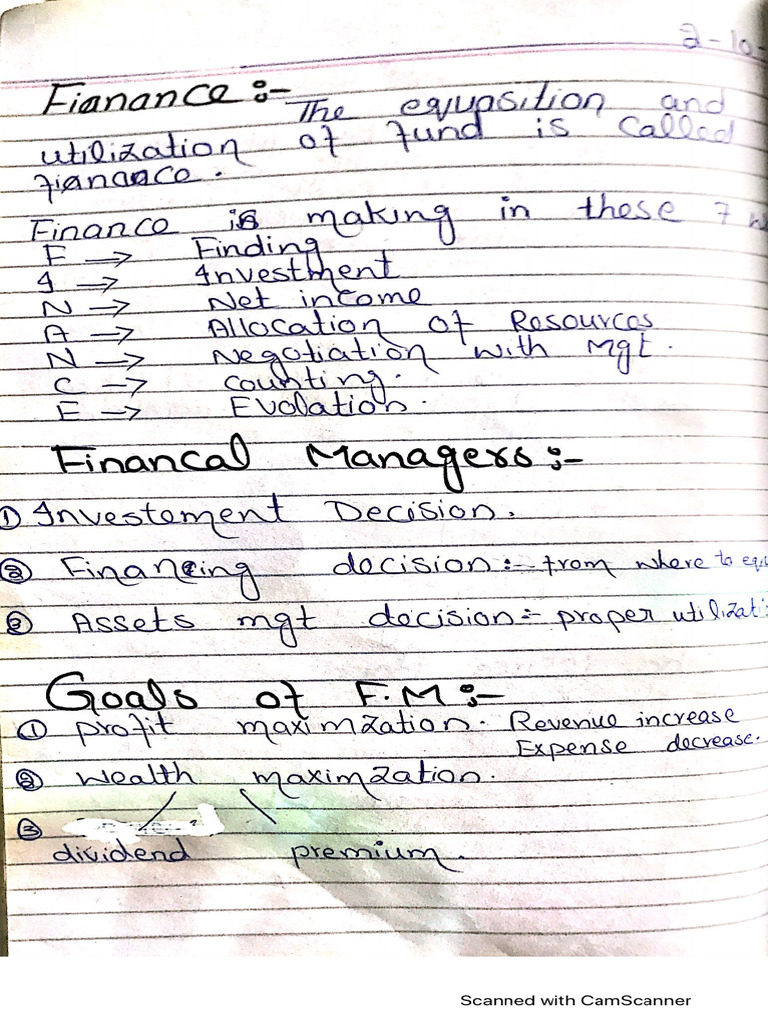 2-10-
Fianance :-
The equasition and
utilization of fund is called
fianance.
Finance is making in these 7 w
F → Finding
I → Investment
N → Net income
A → Allocation of Resources
N → Negotiation with Mgt.
C → counting.
E → Evolation.
Financal Managers :-
① Investement Decision.
② Financing decision :- from where to equ
③ Assets mgt decision :- proper utilizati
Goals of F.M :-
① profit maximzation. Revenue increase
Expense decrease.
② Wealth maximzation.
③
dividend premium.
Scanned with CamScanner